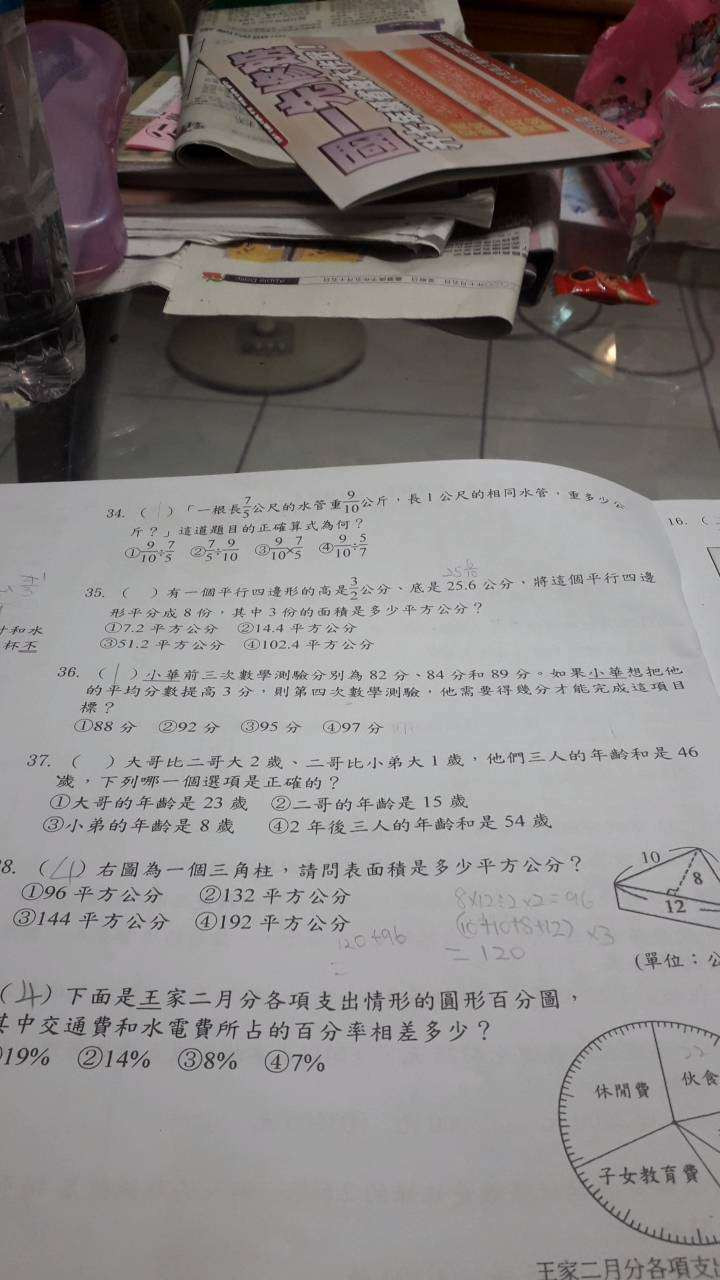 APPLE DAILY
34. (1)「一根長7/5公尺的水管重9/10公斤，長1公尺的相同水管，重多少公
斤？」這道題目的正確算式為何？
①9/10÷7/5 ②7/5÷9/10 ③9/10×7/5 ④9/10÷5/7
35. ( ) 有一個平行四邊形的高是3/2公分、底是25.6公分，將這個平行四邊
形平分成8份，其中3份的面積是多少平方公分？
①7.2平方公分 ②14.4平方公分
③51.2平方公分 ④102.4平方公分
36. (1) 小華前三次數學測驗分別為82分、84分和89分。如果小華想把他
的平均分數提高3分，則第四次數學測驗，他需要得幾分才能完成這項目
標？
①88分 ②92分 ③95分 ④97分
37. ( ) 大哥比二哥大2歲、二哥比小弟大1歲，他們三人的年齡和是46
歲，下列哪一個選項是正確的？
①大哥的年齡是23歲 ②二哥的年齡是15歲
③小弟的年齡是8歲 ④2年後三人的年齡和是54歲
8. (4) 右圖為一個三角柱，請問表面積是多少平方公分？
①96平方公分 ②132平方公分
③144平方公分 ④192平方公分
8×12÷2×2=96
(10+10+8+12)×3
=120
120+96
=
10
8
12
(單位：公
(4) 下面是王家二月分各項支出情形的圓形百分圖，
其中交通費和水電費所占的百分率相差多少？
19% ②14% ③8% ④7%
休閒費
伙食
22
子女教育費
王家二月分各項支出
16. (
和水
杯不